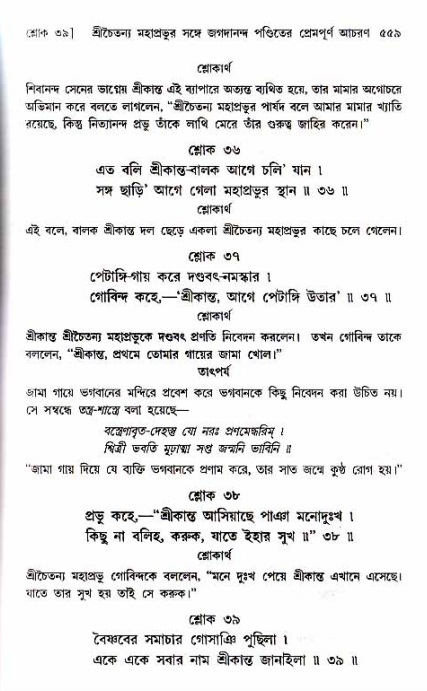 শ্লোক ৩৯] শ্রীচৈতন্য মহাপ্রভুর সঙ্গে জগদানন্দ পণ্ডিতের প্রেমপূর্ণ আচরণ ৫৫৯
শ্লোকার্থ
শিবানন্দ সেনের ভাগ্নেয় শ্রীকান্ত এই ব্যাপারে অত্যন্ত ব্যথিত হয়ে, তার মামার অগোচরে
অভিমান করে বলতে লাগলেন, “শ্রীচৈতন্য মহাপ্রভুর পার্ষদ বলে আমার মামার খ্যাতি
রয়েছে, কিন্তু নিত্যানন্দ প্রভু তাঁকে লাথি মেরে তাঁর গুরুত্ব জাহির করেন।”
শ্লোক ৩৬
এত বলি শ্রীকান্ত-বালক আগে চলি’ যান ।
সঙ্গ ছাড়ি’ আগে গেলা মহাপ্রভুর স্থান ॥ ৩৬ ॥
শ্লোকার্থ
এই বলে, বালক শ্রীকান্ত দল ছেড়ে একলা শ্রীচৈতন্য মহাপ্রভুর কাছে চলে গেলেন।
শ্লোক ৩৭
পেটাঙ্গি-গায় করে দণ্ডবৎ-নমস্কার ।
গোবিন্দ কহে,—‘শ্রীকান্ত, আগে পেটাঙ্গি উতার’ ॥ ৩৭ ॥
শ্লোকার্থ
শ্রীকান্ত শ্রীচৈতন্য মহাপ্রভুকে দণ্ডবৎ প্রণতি নিবেদন করলেন। তখন গোবিন্দ তাকে
বললেন, “শ্রীকান্ত, প্রথমে তোমার গায়ের জামা খোল।”
তাৎপর্য
জামা গায়ে ভগবানের মন্দিরে প্রবেশ করে ভগবানকে কিছু নিবেদন করা উচিত নয়।
সে সম্বন্ধে তন্ত্র-শাস্ত্রে বলা হয়েছে—
বস্ত্রেণাবৃত-দেহস্তু যো নরঃ প্রণমেদ্ধরিম্ ।
শ্বিত্রী ভবতি মূঢ়াত্মা সপ্ত জন্মনি ভাবিনি ॥
“জামা গায় দিয়ে যে ব্যক্তি ভগবানকে প্রণাম করে, তার সাত জন্মে কুষ্ঠ রোগ হয়।”
শ্লোক ৩৮
প্রভু কহে,—“শ্রীকান্ত আসিয়াছে পাঞা মনোদুঃখ ।
কিছু না বলিহ, করুক, যাতে ইহার সুখ ॥” ৩৮ ॥
শ্লোকার্থ
শ্রীচৈতন্য মহাপ্রভু গোবিন্দকে বললেন, “মনে দুঃখ পেয়ে শ্রীকান্ত এখানে এসেছে।
যাতে তার সুখ হয় তাই সে করুক।”
শ্লোক ৩৯
বৈষ্ণবের সমাচার গোসাঞি পুছিলা ।
একে একে সবার নাম শ্রীকান্ত জানাইলা ॥ ৩৯ ॥